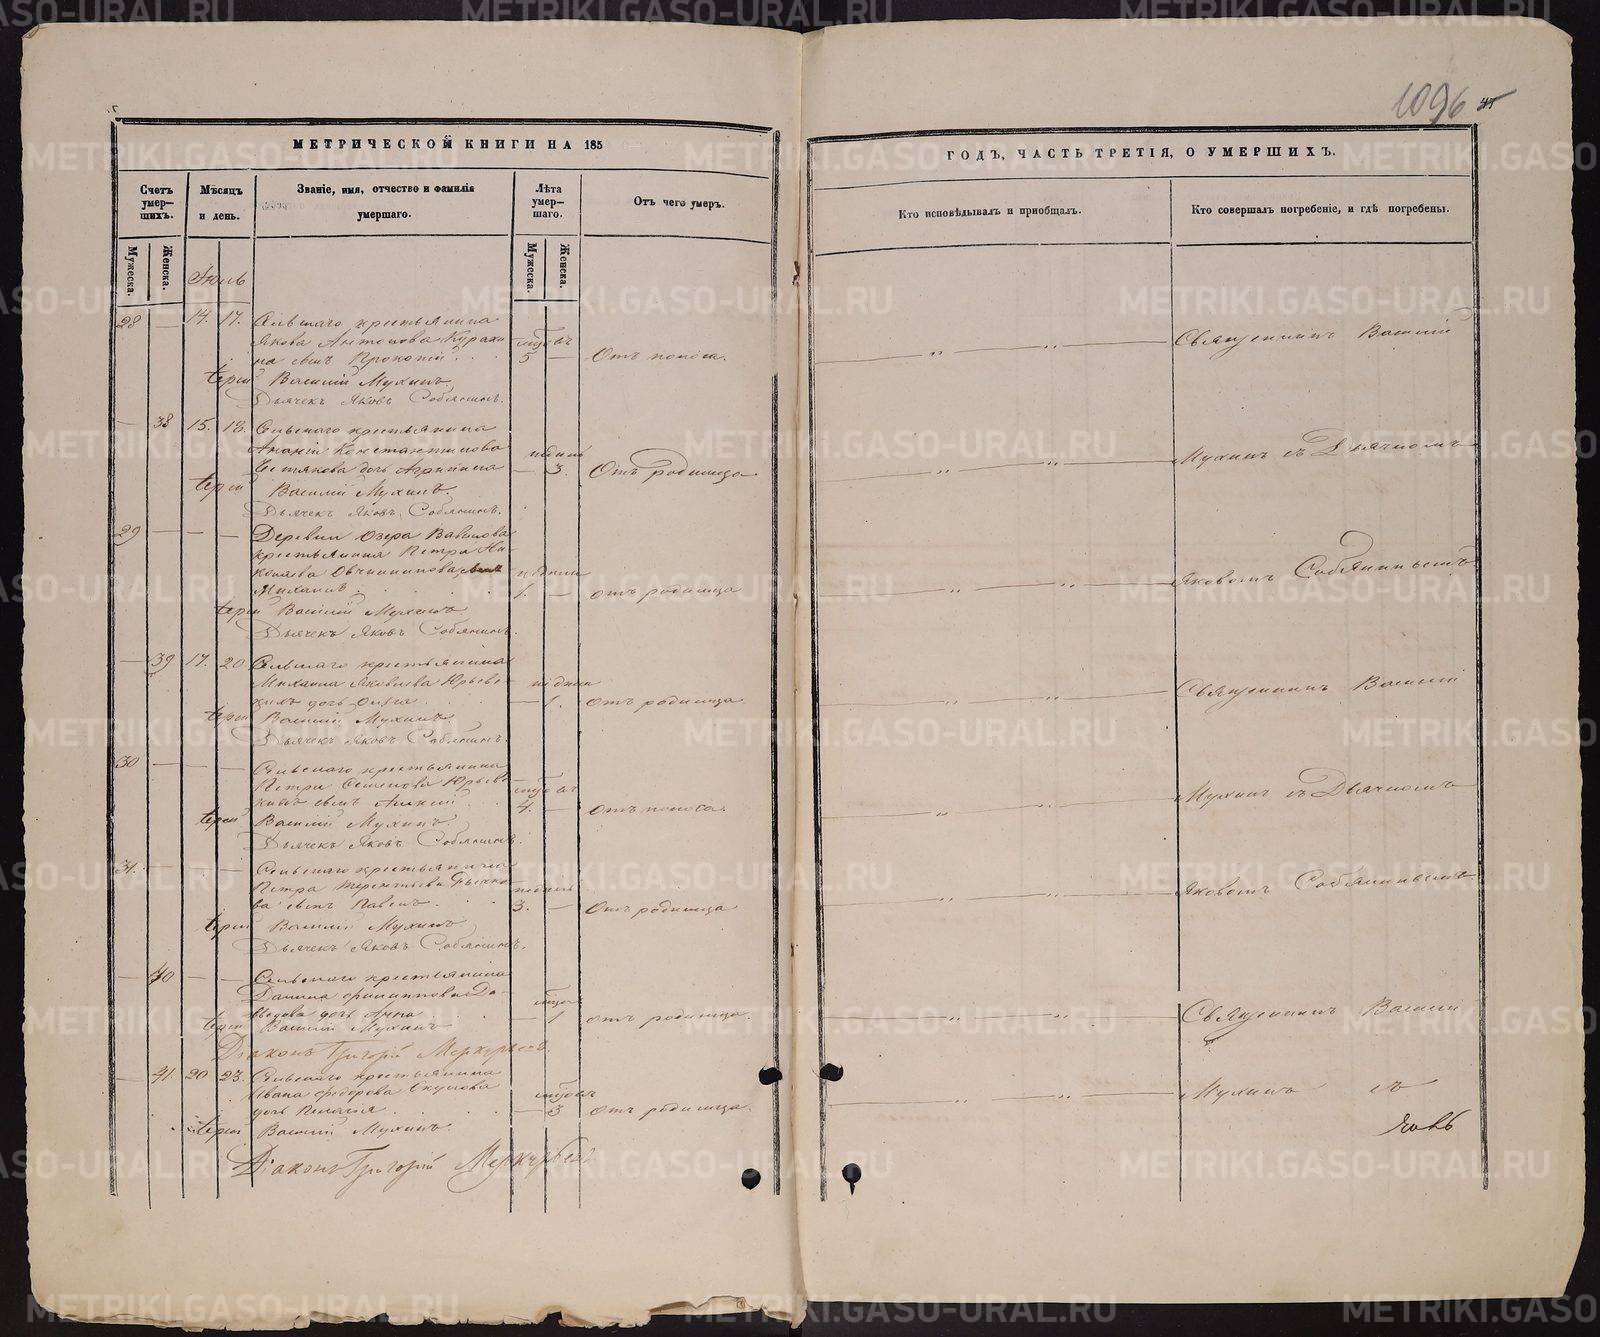 1096
МЕТРИЧЕСКОЙ КНИГИ НА 185
ГОДЪ, ЧАСТЬ ТРЕТІЯ, О УМЕРШИХЪ.
Счетъ умер—шихъ.
Мѣсяцъ и день.
Званіе, имя, отчество и фамилія умершаго.
Лѣта умер—шаго.
Отъ чего умеръ.
Кто исповѣдывалъ и пріобщалъ.
Кто совершалъ погребеніе, и гдѣ погребены.
Мужеска.
Женска.
Мужеска.
Женска.
Іюль
28 — 14. 17. Сельскаго крестьянина
Якова Антонова
на сынъ Прокопій
5 — Отъ поноса.
Священникъ Василій
Іерей Василій Мухинъ.
Дьячекъ Яковъ Собянинъ.
— 38 15. 18. Сельскаго крестьянина
Ананій Константинова
дочь Агрипина — 3. Отъ родимца
Мухинъ съ Дьячкомъ
Іерей Василій Мухинъ.
Дьячекъ Яковъ Собянинъ.
29 — — — Деревни Озера Вавилова
крестьянина Петра Ни-
колаева Овчинникова сынъ
Михаилъ 1. — отъ родимца
Яковомъ Собянинымъ
Іерей Василій Мухинъ
Дьячекъ Яковъ Собянинъ.
— 39 17. 20 Сельскаго крестьянина
Михаила Яковлева Юрьевс-
кихъ дочь — 1. отъ родимца.
Священникъ Василій
Іерей Василій Мухинъ.
Дьячекъ Яковъ Собянинъ.
30 — — — Сельскаго крестьянина
Петра Семенова Юрьевс-
кихъ сынъ 4. — Отъ поноса.
Мухинъ съ Дьячкомъ
Іерей Василій Мухинъ.
Дьячекъ Яковъ Собянинъ.
31. — — — Сельскаго крестьянина
Петра Терентьева
ва сынъ Павелъ. 3. — Отъ родимца
Яковомъ Собянинымъ
Іерей Василій Мухинъ
Дьячекъ Яковъ Собянинъ.
— 40 — — Сельскаго крестьянина
Данила Филиппова Да-
выдова дочь Анна — 1 отъ родимца.
Священникъ Василій
Іерей Василій Мухинъ
Діаконъ Григорій Меркурьевъ.
— 41. 20 23. Сельскаго крестьянина
Ивана Федорова
дочь Пелагія — 3 Отъ родимца.
Мухинъ съ
Іерей Василій Мухинъ.
Діаконъ Григорій Меркурьевъ
METRIKI.GASO-URAL.RU